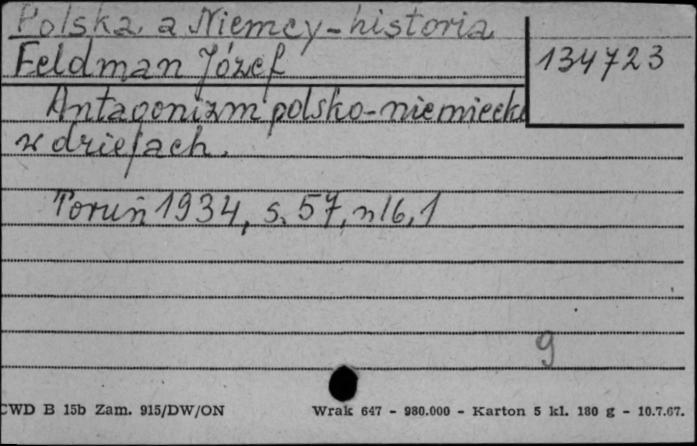 Polska a Niemcy - historia
Feldman Józef
134723
Antagonizm polsko-niemiecki
w dziejach.
Toruń 1934, s. 57, nlb, 1
9
CWD B 15b Zam. 915/DW/ON
Wrak 647 - 980.000 - Karton 5 kl. 180 g - 10.7.67.